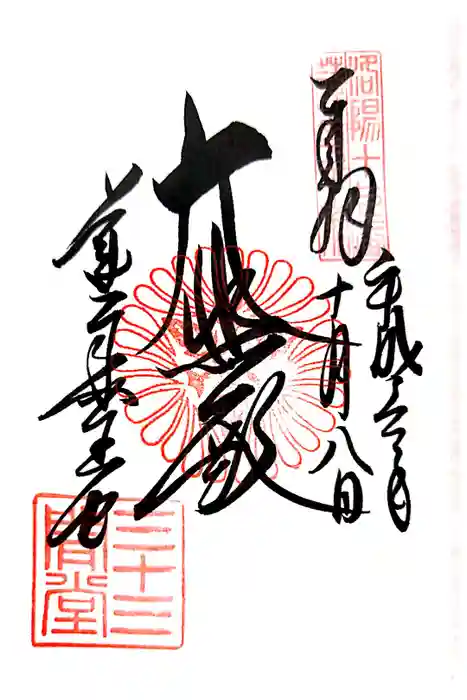 奉拝
平成二六年
十月八日
大悲殿
蓮華王院
三十三
間堂